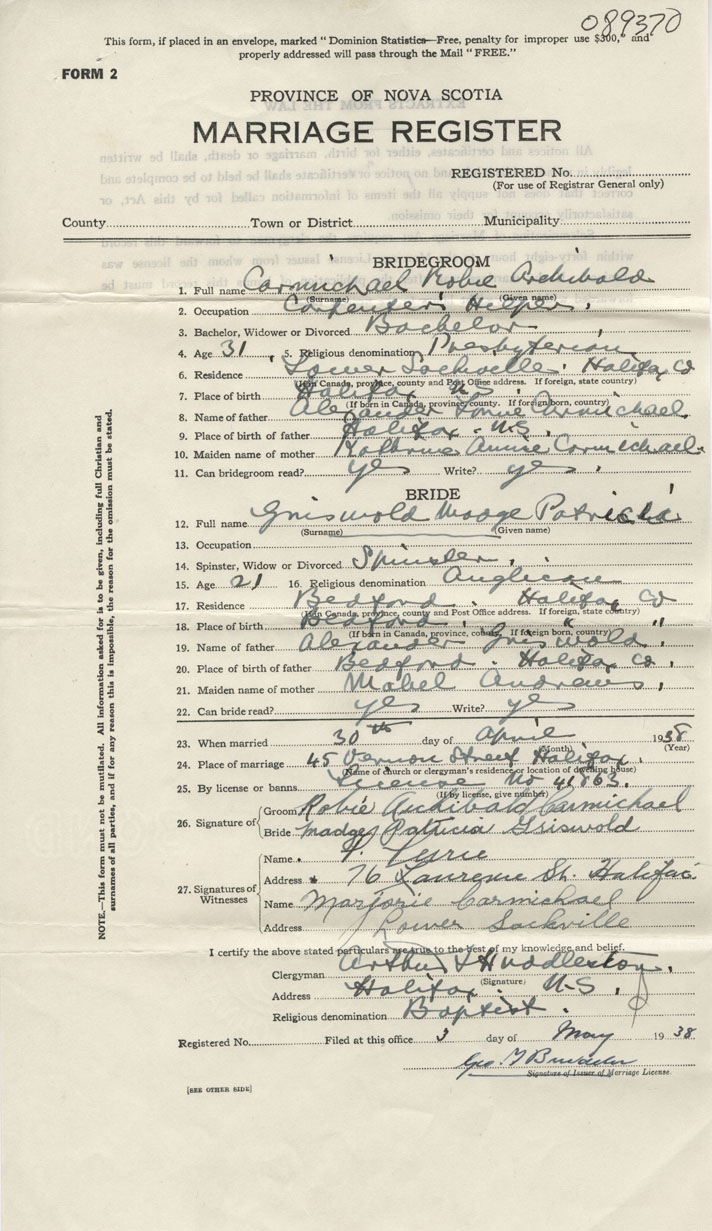 089370
This form, if placed in an envelope, marked "Dominion Statistics—Free, penalty for improper use $300," and
properly addressed will pass through the Mail "FREE."
FORM 2
PROVINCE OF NOVA SCOTIA
MARRIAGE REGISTER
REGISTERED No.
(For use of Registrar General only)
County Town or District Municipality
BRIDEGROOM
1. Full name Carmichael Robie Archibald
(Surname) (Given name)
2. Occupation Carpenter's Helper.
3. Bachelor, Widower or Divorced Bachelor
4. Age 31, 5. Religious denomination Presbyterian
6. Residence Lower Sackville. Halifax Co
(If in Canada, province, county and Post Office address. If foreign, state country)
7. Place of birth Halifax N.S.
(If born in Canada, province, county. If foreign born, country)
8. Name of father Alexander Carmichael
9. Place of birth of father Halifax. N.S.
10. Maiden name of mother Annie Carmichael.
11. Can bridegroom read? yes Write? yes.
BRIDE
12. Full name Griswold Madge Patricia
(Surname) (Given name)
13. Occupation
14. Spinster, Widow or Divorced Spinster.
15. Age 21 16. Religious denomination Anglican
17. Residence Bedford. Halifax Co
(If in Canada, province, county and Post Office address. If foreign, state country)
18. Place of birth Bedford. " "
(If born in Canada, province, county. If foreign born, country)
19. Name of father Alexander Griswold.
20. Place of birth of father Bedford. Halifax Co.
21. Maiden name of mother Mabel Andrews,
22. Can bride read? yes Write? yes
23. When married 30th day of April 1938
(Month) (Year)
24. Place of marriage 45 Vernon Street Halifax.
(Name of church or clergyman's residence or location of dwelling house)
25. By license or banns License No 41863.
(If by license, give number)
26. Signature of
Groom Robie Archibald Carmichael
Bride Madge Patricia Griswold
27. Signatures of Witnesses
Name
Address 76 St. Halifax
Name Marjorie Carmichael
Address Lower Sackville
I certify the above stated particulars are true to the best of my knowledge and belief.
Clergyman Arthur Huddleston.
(Signature)
Address Halifax. N.S.
Religious denomination Baptist.
Registered No. Filed at this office 3 day of May 1938
Geo.
Signature of Issuer of Marriage License.
[SEE OTHER SIDE]
NOTE.—This form must not be mutilated. All information asked for is to be given, including full Christian and
surnames of all parties, and if for any reason this is impossible, the reason for the omission must be stated.